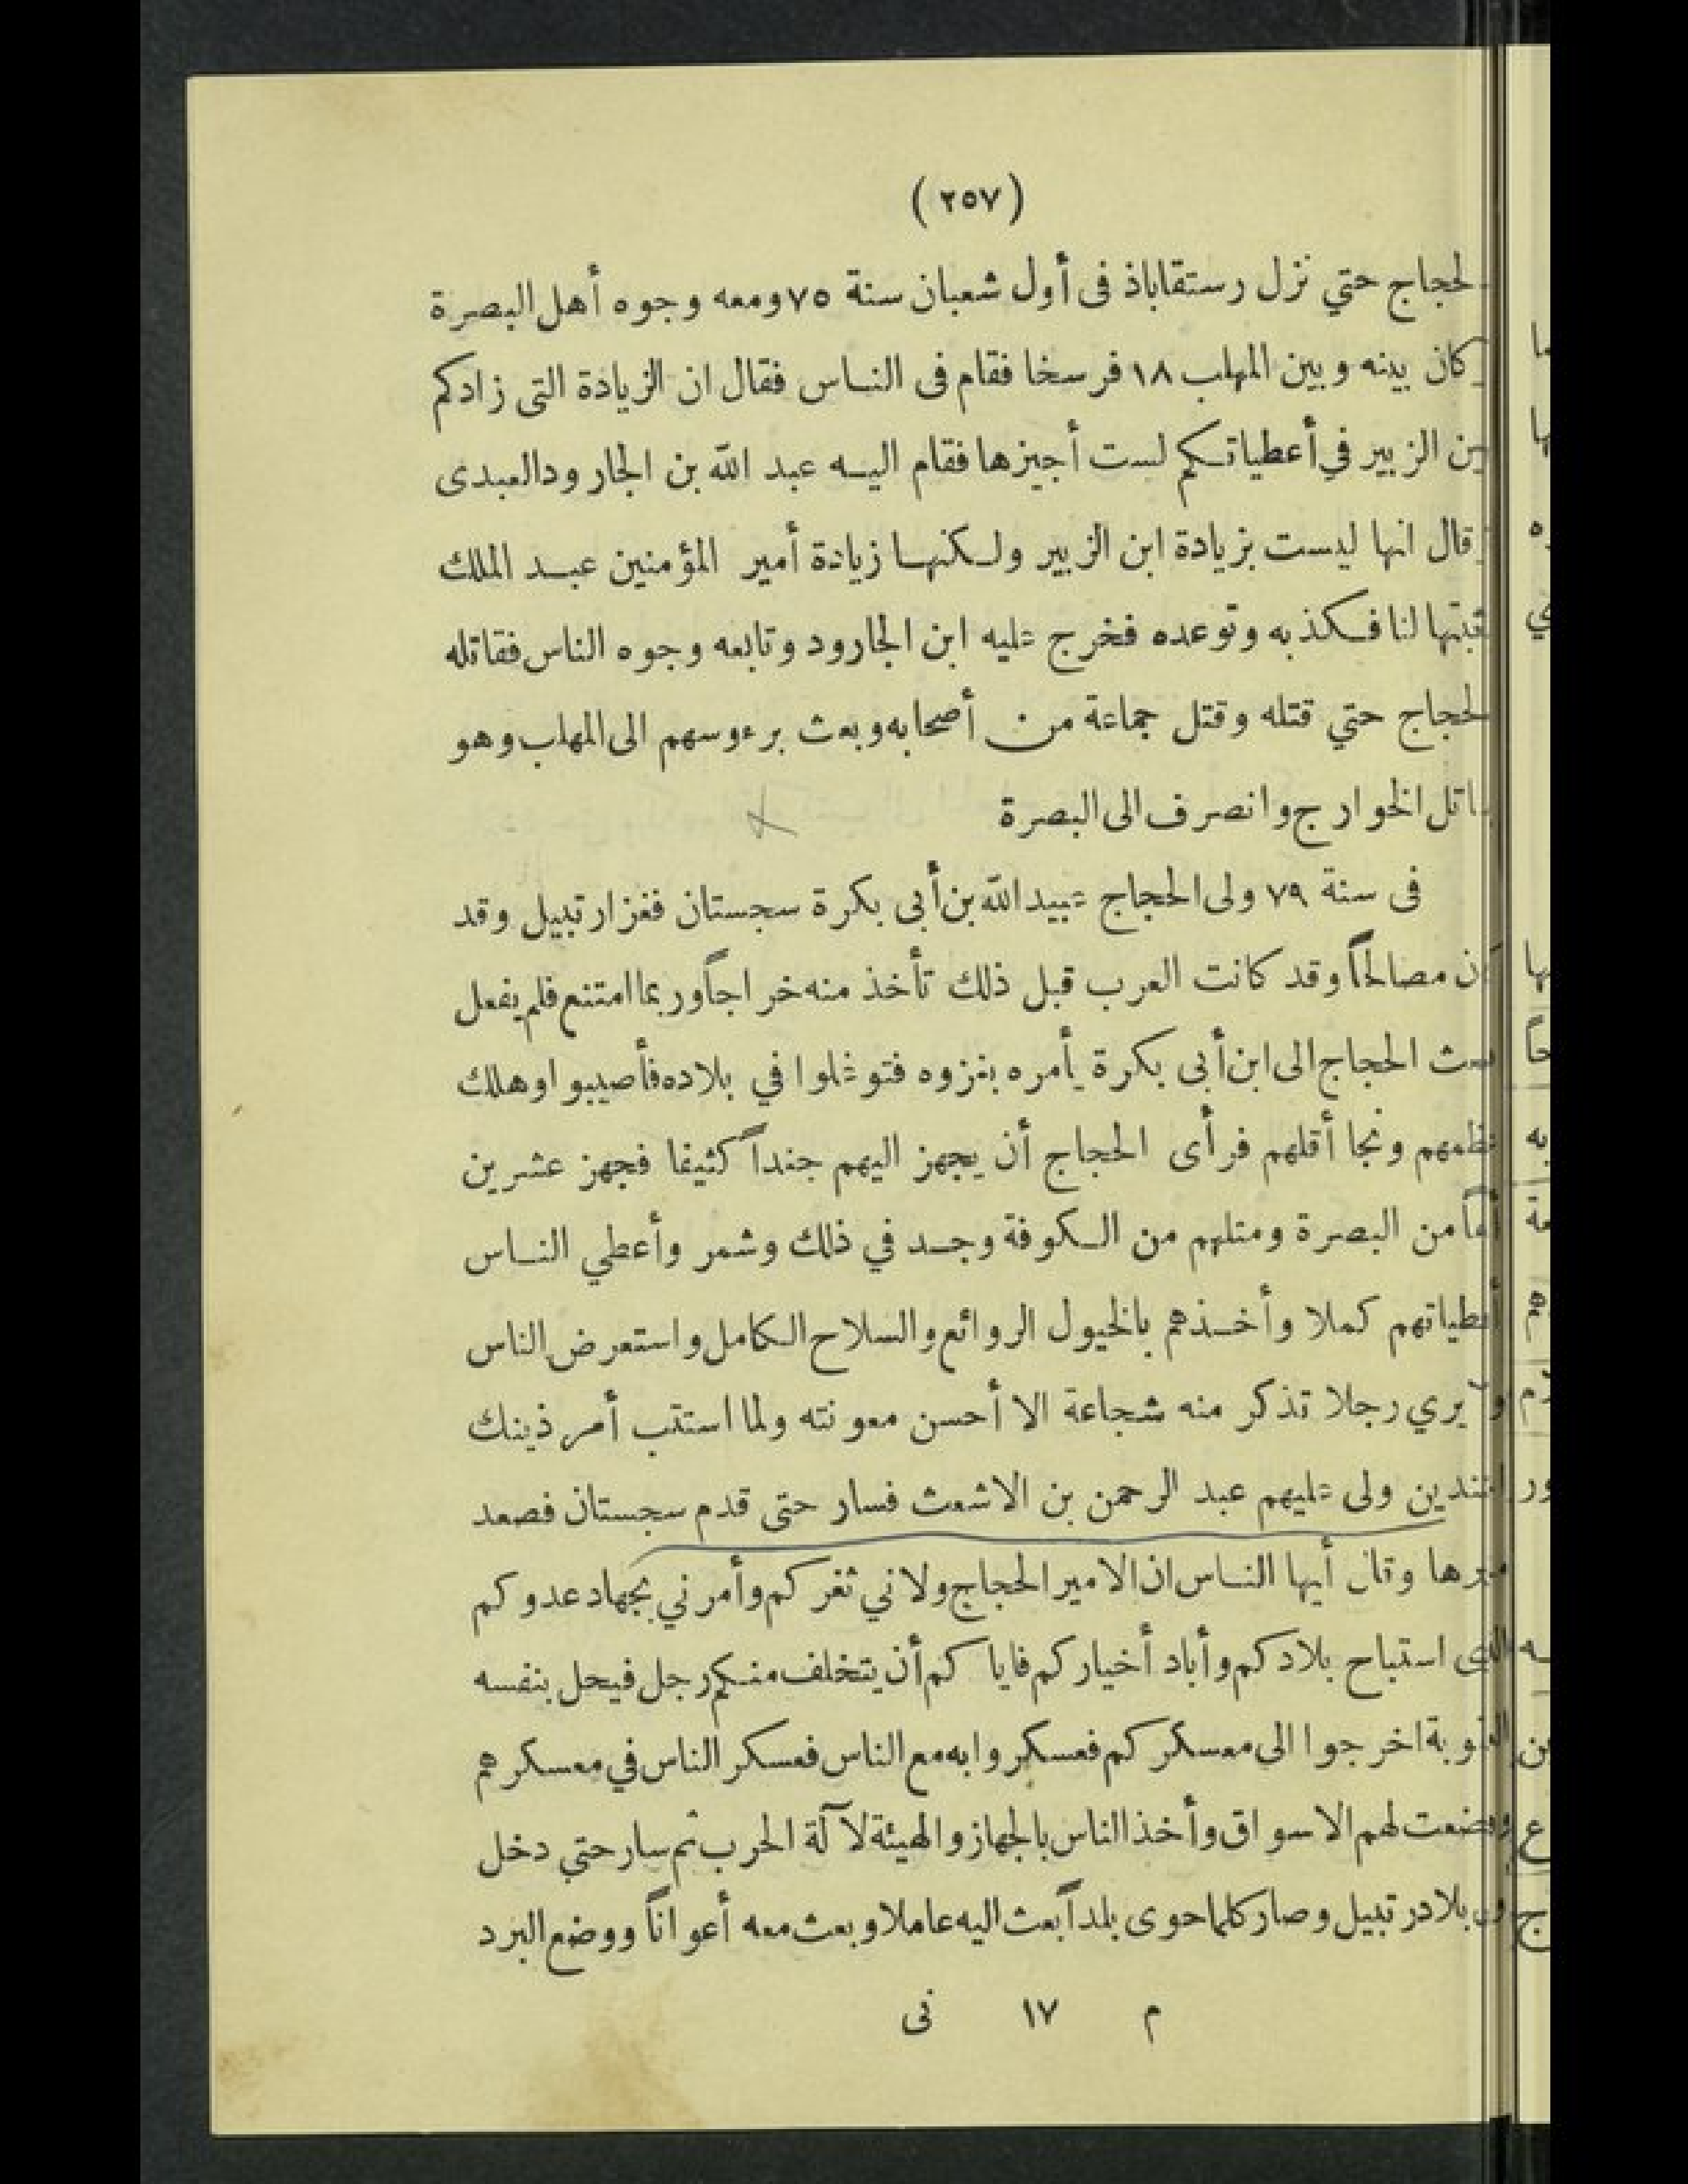 (٢٥٧)
لحجاج حتي نزل رستقاباذ فى أول شعبان سنة ٧٥ ومعه وجوه أهل البصرة
كان بينه وبين المهلب ١٨ فرسخا فقام فى الناس فقال ان الزيادة التى زادكم
بن الزبير في أعطياتكم لست أجيزها فقام اليه عبد الله بن الجارود العبدى
قال انها ليست بزيادة ابن الزبير ولكنها زيادة أمير المؤمنين عبد الملك
ثبتها لنا فكذبه وتوعده فخرج عليه ابن الجارود وتابعه وجوه الناس فقاتله
لحجاج حتي قتله وقتل جماعة من أصحابه وبعث برءوسهم الى المهلب وهو
اتل الخوارج وانصرف الى البصرة
فى سنة ٧٩ ولى الحجاج عبيد الله بن أبى بكرة سجستان فغزا رتبيل وقد
كان مصالحاً وقد كانت العرب قبل ذلك تأخذ منه خراجاً وربما امتنع فلم يفعل
بعث الحجاج الى ابن أبى بكرة يأمره بغزوه فتوغلوا في بلاده فأصيبوا وهلك
عظمهم ونجا أقلهم فرأى الحجاج أن يجهز اليهم جنداً كثيفا فجهز عشرين
ألفاً من البصرة ومثلهم من الكوفة وجد في ذلك وشمر وأعطي الناس
أعطياتهم كملا وأخذهم بالخيول الروائع والسلاح الكامل واستعرض الناس
ولا يري رجلا تذكر منه شجاعة الا أحسن معونته ولما استتب أمر ذينك
الجندين ولى عليهم عبد الرحمن بن الاشعث فسار حتى قدم سجستان فصعد
منبرها وقال أيها الناس ان الامير الحجاج ولاني ثغركم وأمرني بجهاد عدوكم
الذى استباح بلادكم وأباد أخياركم فاياكم أن يتخلف منكم رجل فيحل بنفسه
العقوبة اخرجوا الى معسكركم فعسكروا به مع الناس فعسكر الناس في معسكرهم
ووضعت لهم الاسواق وأخذ الناس بالجهاز والهيئة لآلة الحرب ثم سار حتي دخل
بلاد رتبيل وصار كلما حوى بلداً بعث اليه عاملا وبعث معه أعواناً ووضع البرد
م ١٧ نى